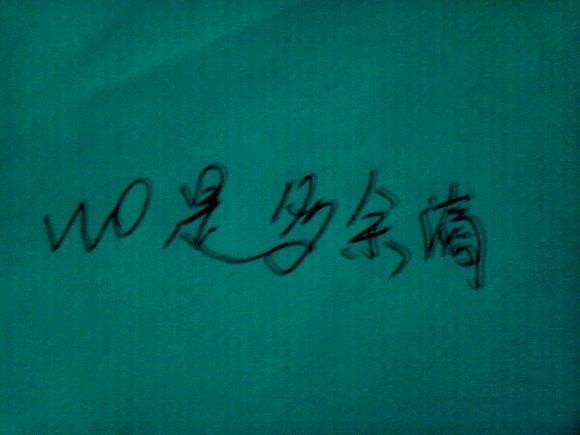 wo是多余滴